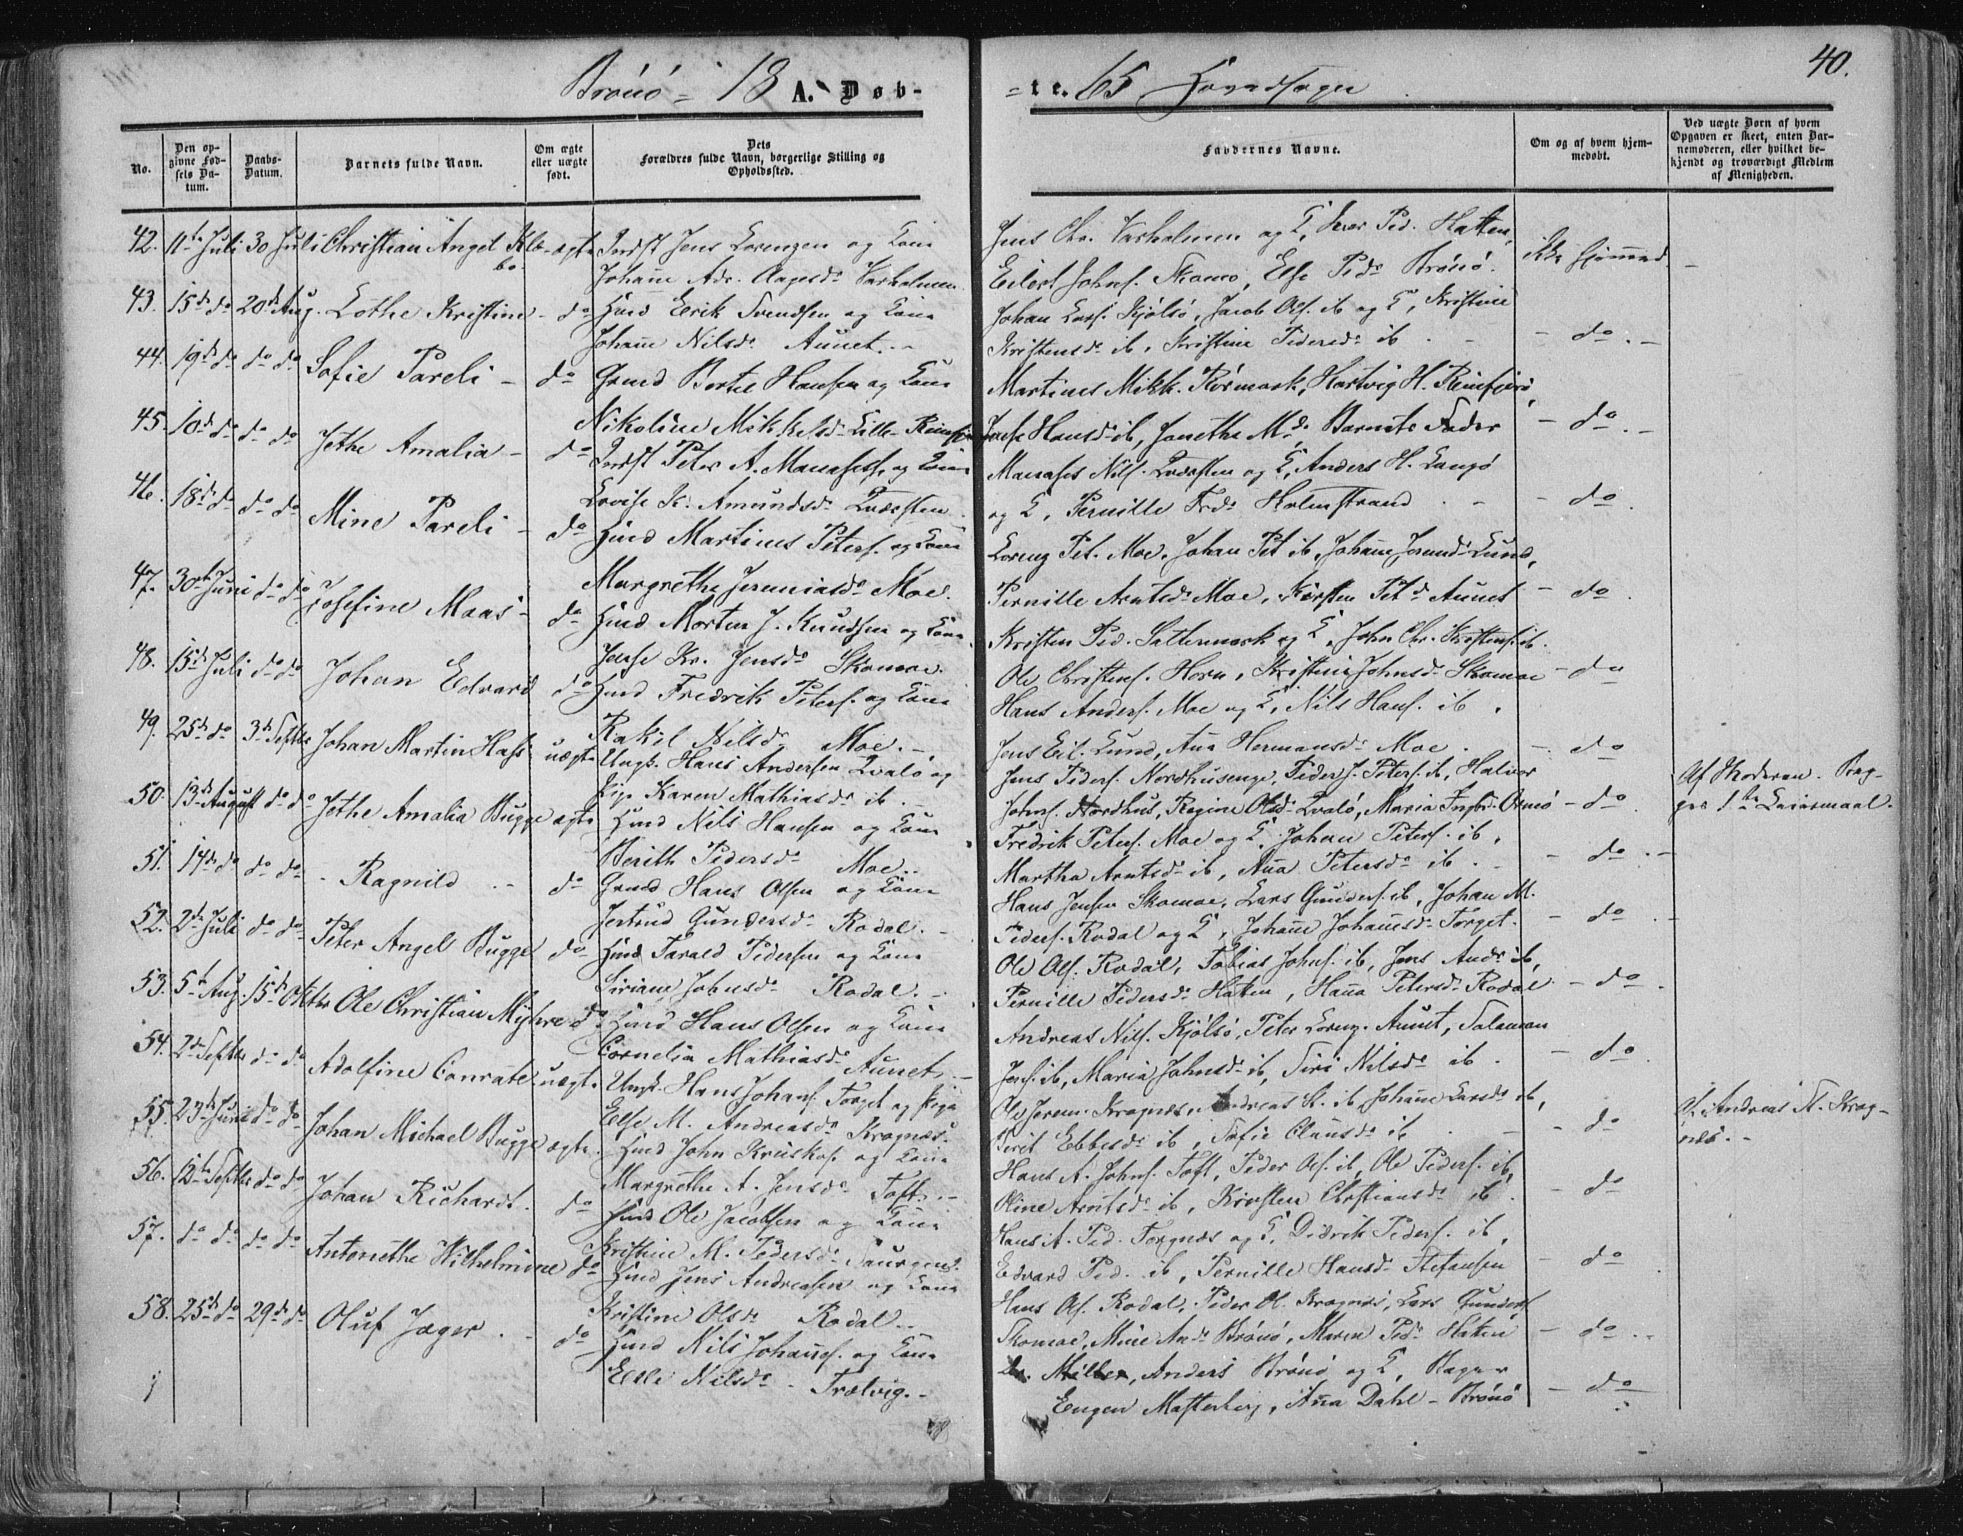 Brönö = 18 A. Døb-
-te. 65 Hovedsogn
40.
No.
Den op-
givne Fød-
sels Da-
tum.
Daabs-
Datum.
Barnets fulde Navn.
Om ægte
eller uægte
født.
Dets
Forældres fulde Navn, borgerlige Stilling og
Opholdssted.
Faddernes Navne.
Om og af hvem hjem-
medøbt.
Ved uægte Børn af hvem
Opgaven er skeet, enten Bar-
nemoderen, eller hvilket be-
kjendt og troværdigt Medlem
af Menigheden.
42. 11te Juli 30 Juli Christian Angel Klæ- ægte Indst Jens Lorenzen og Kone
bo. Johanne Adr. Aagesdr Varholmen
Jens Chr. Varholmen og K, Peder Hatten,
Eilert Johns. Skomo, Else Pedr Brönö.
ikke hjemmed. -
43. 15de do 20de Aug. Lothe Kristine - do Huusd Erik Svendsen og Kone
Johanne Nilsdr Aunet. -
Johan Lars. Kjölsö, Jacob Ols. ib og K, Kristine
Kristensdr ib, Kristine Pedersdr ib.
- do. -
44. 19de do do do Sofie Pareli - do Grmd Bertel Hansen og Kone
Nikoline Mikkelsdr Lille Remfjerö
Martinus Mikk. Rörmark, Hartvig H. Remfjerö,
Hansdr ib, Janetha Mdr, Barnets Fader
- do. -
45. 10de do do do Jethe Amalia - do Indst Peter A. Manasess. og Kone
Lovise K. Amundsdr Tværsten
Manases Nils. Tværsten og K, Anders H. Langö
og K, Pernille Frdr Holmstrand.
- do.
46. 18de do do do Mine Pareli - do Huusd Martinus Peters. og Kone
Margrethe Jeremiasdr Moe.
Lorenz Pet. Moe, Johan Pet ib, Johanne Lund,
Pernille Arntsdr Moe, Kirsten Petdr Aunet
- do.
47. 30te Juni do do Josefine Maas - do Huusd Morten J. Knudsen og Kone
Kr. Jensdr Skomoe.
Kristen Ped. Sattermark og K, John Chr. Kristens. ib.
Ole Christens. Horn, Kristine Johnsdr Skomoe
- do
48. 15de Juli do do Johan Edvard do Huusd Fredrik Peters. og Kone
Rakel Nilsdr Moe. -
Hans Anders. Moe og K, Nils Hans. ib,
Jens Eil. Lund, Ana Hermansdr Moe.
- do
49. 25de do 3de Septbr Johan Martin Hass uægte Ungk. Hans Andersen Qvalö og
Pig. Karen Mathiasdr ib. -
Jens Peders. Nordhuseng, Peder J. Peters. ib, Halvor
Johns. Nordhus, Regine Olsdr Qvalö, Maria Ingbr. Osmö
- do.
Af Moderen. Beg-
ges 1te Leiermaal.
50. 13de August do do Jethe Amalia Bugge ægte Huusd Nils Hansen og Kone
Berith Pedersdr Moe. -
Fredrik Peters. Moe og K, Johan Peters. ib,
Martha Arntsdr ib, Ana Petersdr ib.
- do. -
51. 14de do do do - Ragnild - do Grmd Hans Olsen og Kone
Jertrud Gundersdr Rodal. -
Hans Jensen Skomoe, Lars Gunders. ib, Johan M.
Peders. Rodal og K, Johanne Johannesdr Torget.
- do. -
52. 2de Juli do do Peter Angel Bugge do Huusd Tarald Pedersen og Kone
Siriane Johnsdr Rodal. -
Ole Ols. Rodal, Tobias Johns. ib, Jens Andr ib,
Pernille Pedersdr Hatten, Hana Petersdr Rodal
- do.
53. 5te Aug. 15de Oktbr Ole Christian do Huusd Hans Olsen og Kone
Cornelia Mathiasdr Aunet. -
Andreas Nils. Kjölsö, Peter Lorenz. Aunet, Salamon
Jens. ib, Maria Johnsdr ib, Siri Nilsdr ib.
- do.
54. 2de Septbr do do Adolfine Conrate uægte Ungk. Hans Johans. Torget og Pige
Else M. Andreasdr Kragnæs.
Ole Jerem. Kragnæs, Andreas A. ib, Johanne Larsdr ib,
Berit Ebbesdr ib, Sofie Clausdr ib
- do
Af Andreas A. Krag-
næs. -
55. 23de Juni do do Johan Michael Bugge ægte. Huusd John Kruskop. og Kone
Margrethe A. Jensdr Toft. -
Hans A. Johns. Toft, Peder Ols. ib, Ole Peders. ib,
Oline Arntsdr ib, Kirsten Christiansdr ib.
- do
56. 12te Septbr do do Johan Richardt. do Huusd Ole Jacobsen og Kone
Kristine M. Pedersdr
Hans A. Ped. Torgnæs og K, Didrik Peders. ib,
Edvard Ped. ib, Pernille Hansdr Stefansen
- do
57. do do do do Antonethe Wilhelmine do Huusd Jens Andreasen og Kone
Kristine Olsdr Rodal. -
Hans Ols. Rodal, Peder Ol. Kragnæs, Lars Gunders
Skomoe, Mine Andr Brönö, Maren Pedr Hatten
- do. -
58. 25de do 29de do Oluf Jæger. - do Huusd Nils Johannes. og Kone
Else Nilsdr - Trælvig. -
Dr. Möller, Anders Brönö og K,
Eugen Masterberg, Ana Dahl - Brönö
- do